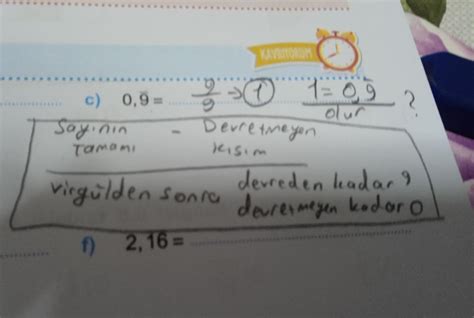 KAVRIYORUM
c) 0,9̅ = 9/9 → 1 1 = 0,9̅ olur ?
Sayının Tamamı - Devretmeyen Kısım
virgülden sonra devreden kadar 9
devretmeyen kadar 0
f) 2,16 =